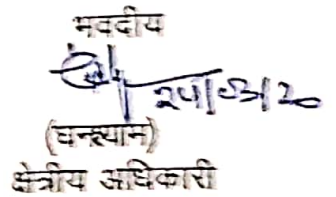 भवदीय
24/03/20
(घनश्याम)
क्षेत्रीय अधिकारी